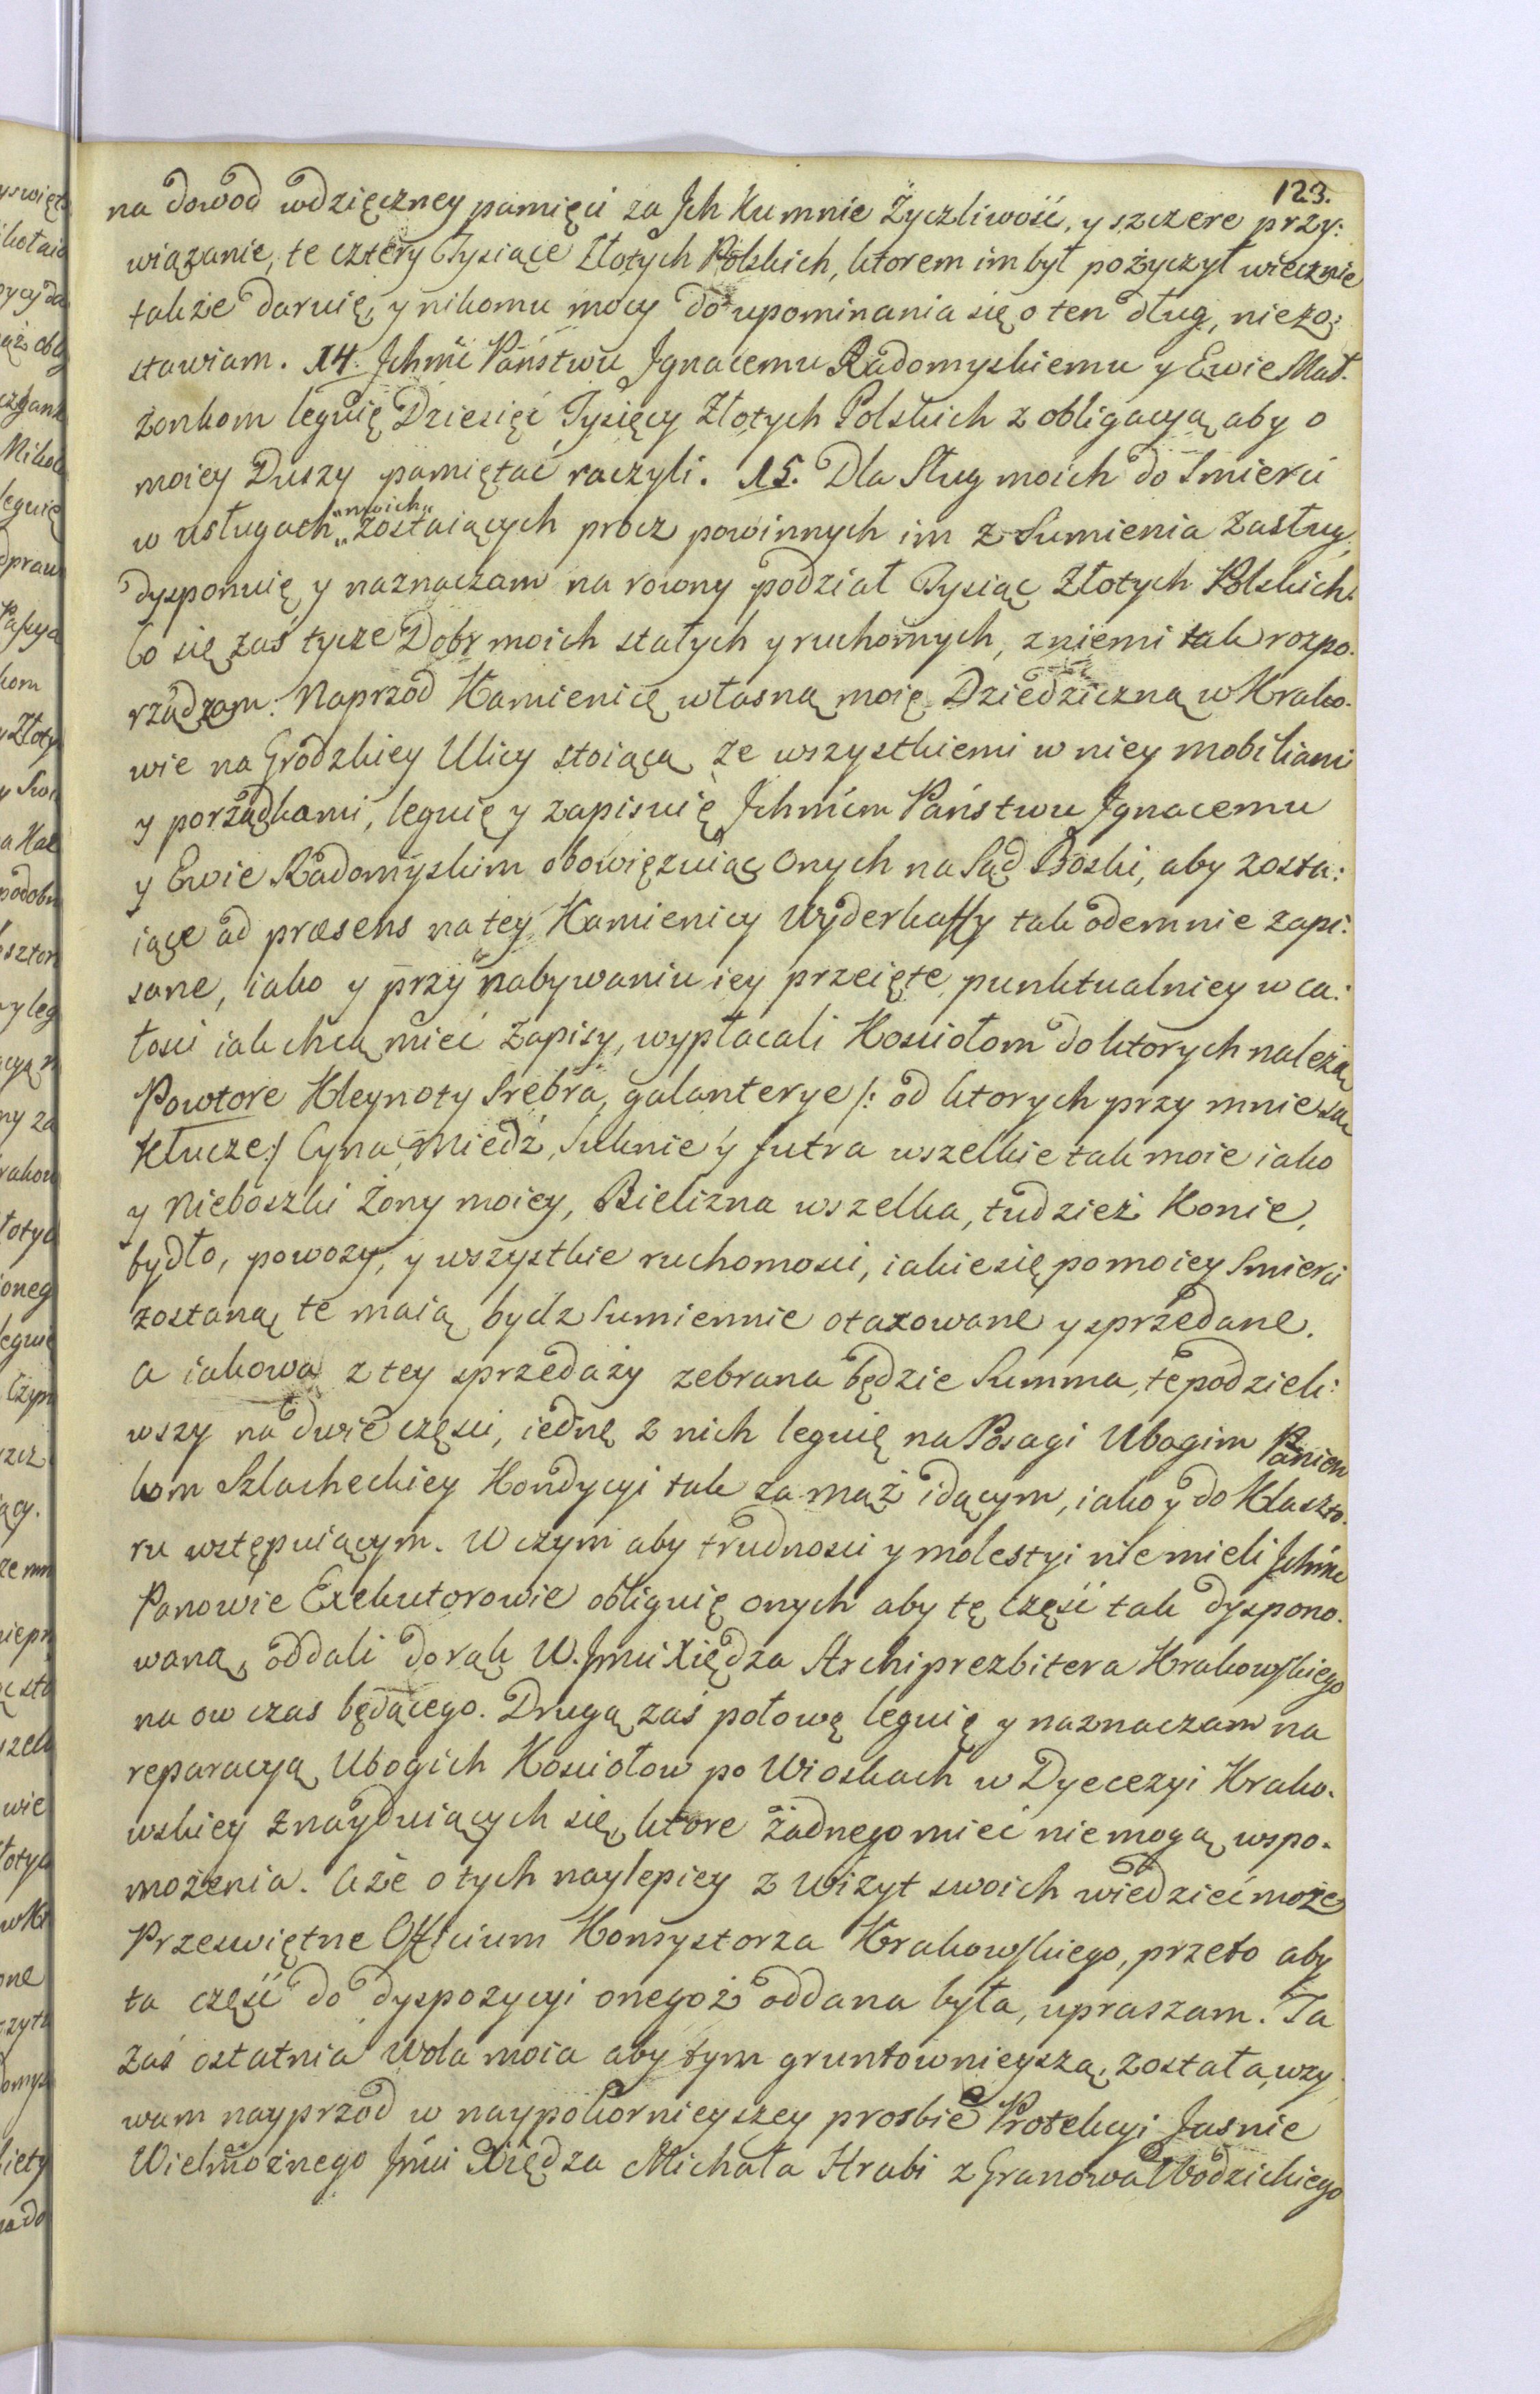 123.
na dowod wdzięczney pamięci za Jch kumnie Życzliwość, y szczere przy:
wiązanie, te cztery Tysiące Złotych Polskich, ktorem im był pożyczył wiecznie
także daruię, y nikomu mocy do upominania się o ten dług, niezo:
stawiam. 14. Jchmć Państwu Jgnacemu Radomyskiemu y Ewie Mał.
żonkom leguię Dziesięć Tysięcy Złotych Polskich z obligacyą, aby o
moiey Duszy pamiętać raczyli. 15. Dla Sług moich do Smierci
w usługach „moich„ zostaiących procz powinnych im z Sumienia zasług,
dysponuię y naznaczam na rowny podział Tysiąc Złotych Polskich.
Co się zaś tycze Dobr moich stałych y ruchomych, z niemi tak rozpo.
rządzam: Naprzod Kamienicę własną moię Dziedziczną w Krako.
wie na Grodzkiey Ulicy stoiącą ze wszystkiemi w niey mobiliami
y porządkami, leguię y zapisuię Jchmćm Państwu Jgnacemu
y Ewie Radomyskim obowięzuiąc Onych na Sąd Boski, aby zosta:
iące ad præsens na tey Kamienicy Wyderkaffy tak odemnie zapi:
sane, iako y przy nabywaniu iey przeięte, punktualniey w ca:
łości iak chcą mieć Zapisy, wypłacali Kosciołom do ktorych należą
Powtore Kleynoty Srebra, galanterye /: od ktorych przy mnie są
Klucze:/ Cyna, Miedź, Suknie y futra wszelkie tak moie iako
y Nieboszki Żony moiey, Bielizna wszelka, tudzież Konie,
bydło, powozy, y wszystkie ruchomosci, iakie się po moiey Smierci
zostaną te maią bydz Sumiennie otaxowane y sprzedane.
A iakowa z tey sprzedaży zebrana będzie Summa, te podzieli:
wszy na dwie części, iednę z nich leguię na Posagi Ubogim Panien
kom Szlacheckiey Kondycyi tak za mąż idącym, iako y do Klaszto.
ru wstępuiącym. W czym aby trudnosci y molestyi nie mieli Jchmć
Panowie Exekutorowie obliguię onych aby tę Część tak dyspono.
waną, oddali do rąk W. Jmci Xiędza Archiprezbitera Krakowskiego
na ow czas będącego. Drugą zaś połowę leguię y naznaczam na
reparacyą Ubogich Kosciołow po Wioskach w Dyecezyi Krako.
wskiey znayduiących się, ktore żadnego mieć nie mogą wspo.
możenia. A że o tych naylepiey z Wizyt swoich wiedzieć może
Przeswiętne Officium Konsystorza Krakowskiego, przeto aby
ta część do dyspozycyi onegoż oddana była, upraszam. Ta
zaś ostatnia Wola moia aby tym gruntownieyszą została, wzy
wam nayprzod w naypokornieyszey prosbie Protekcyi Jasnie
Wielmożnego Jmci Xiędza Michała Hrabi z Granowa Wodzickiego